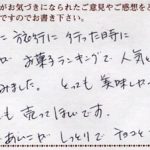 がお気づきになられたご意見やご感想をど
ですのでお書き下さい。
に 旅行に 行った時に
が お菓子ランキングで 人気と
みました。 とっても 美味しかっ
も 売ってほしいです。
あいが しっとりで